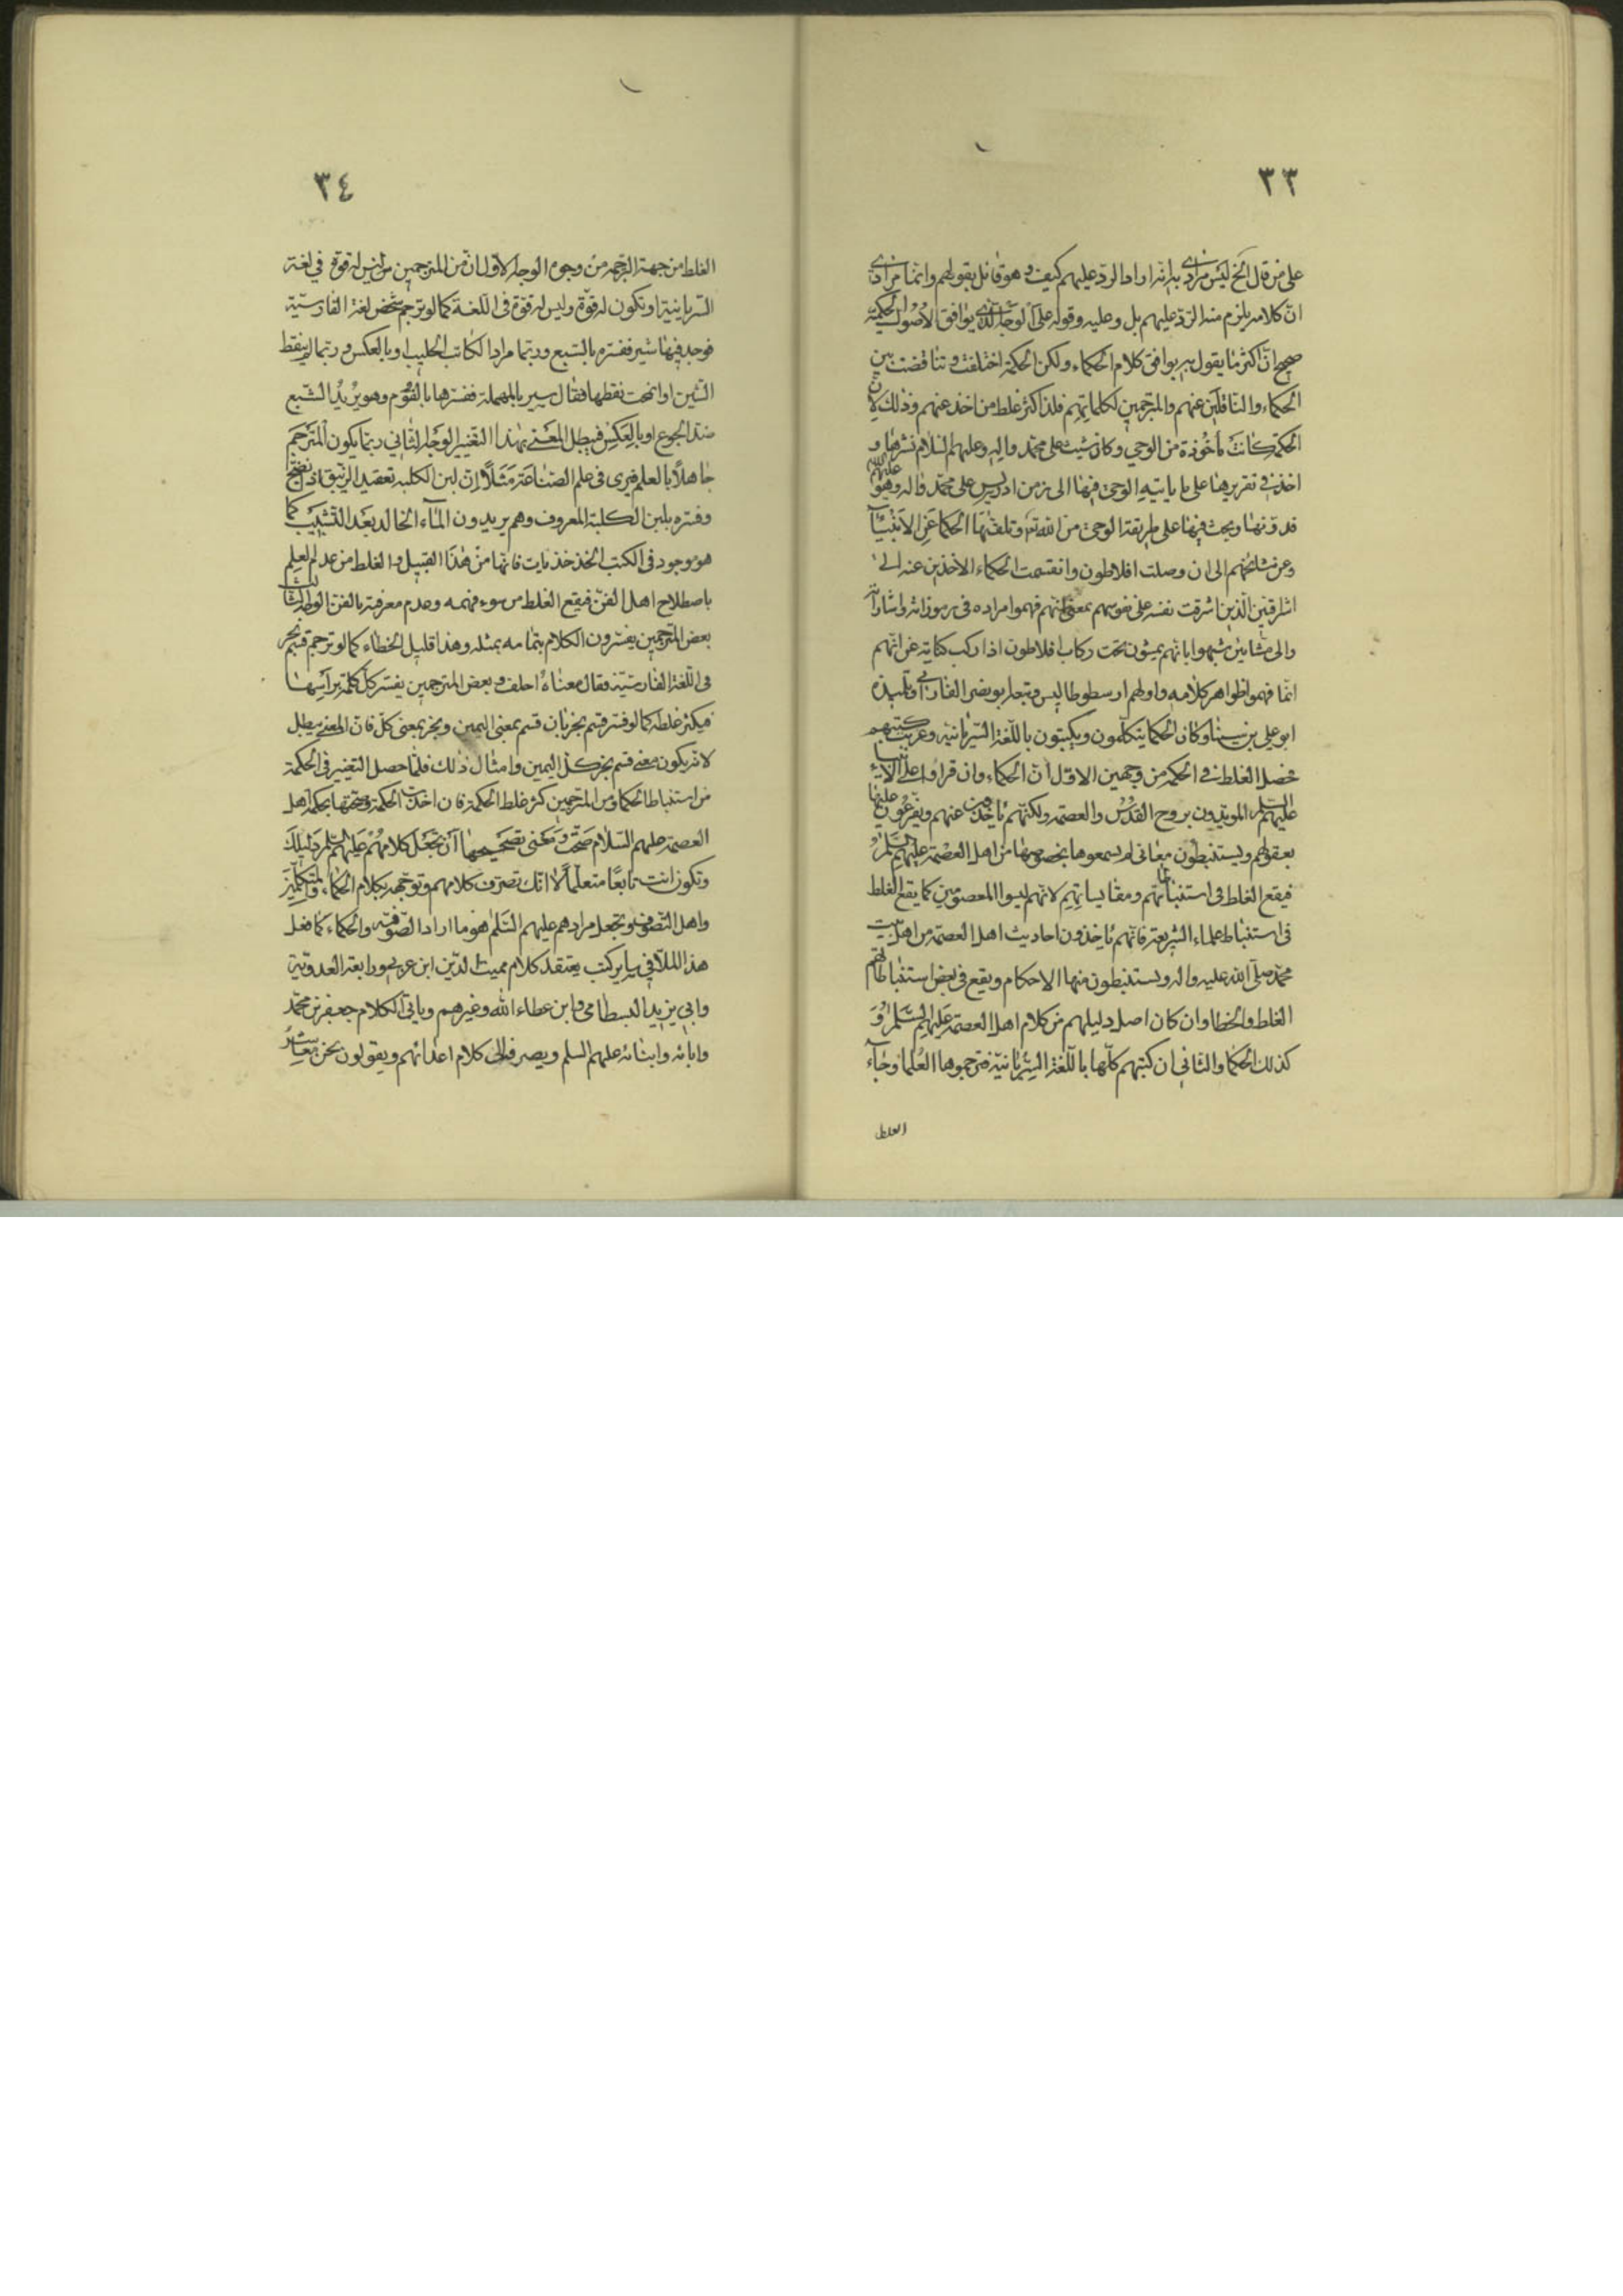 ٣٣
على من قال الخ ليس مرادي به انه اراد الرد عليهم كيف و هو قائل بقولهم وانما مرادي
ان كلامه يلزم منه الرد عليهم بل وعليه وقوله على الوجه الذي يوافق الاصول الحكمية
صحيح ان اكثر ما يقول به يوافق كلام الحكماء ولكن الحكمة اختلفت وتناقضت بين
الحكماء والناقلين عنهم والمترجمين لكلماتهم فلذا كثر غلط من اخذ عنهم وذلك لان
الحكمة كانت مأخوذة من الوحي وكان شيث على محمد واله وعليهم السلام نشرها و
اخذ في تقريرها على ما ياتيه الوحى فيها الى زمن ادريس على محمد واله وعليهم وهو
قد دونها وبحث فيها على طريقة الوحى من الله تع وتلقتها الحكما عن الانبيآ
وعن مشايخهم الى ان وصلت افلاطون وانقسمت الحكماء الاخذين عنه الى
اشراقيين الذين اشرقت نفسه على نفوسهم بمعنى انهم فهموا مراده فى رموزاته واشاراته
والى مشائين شبهوا بانهم يمشون تحت ركاب افلاطون اذا ركب كناية عن انهم
انما فهموا ظواهر كلامه واولهم ارسطوطاليس وتبعه ابو نصر الفارابي وتلميذه
ابو على بن سينا وكان الحكما يتكلمون ويكتبون باللغة السريانية وعربت كتبهم
فحصل الغلط في الحكمة من وجهين الاول ان الحكماء وان قراوا على الانبياء
عليهم السلم المويدون بروح القدس والعصمة ولكنهم ياخذون عنهم ويفرعون عليها
بعقولهم ويستنبطون معانى لم يسمعوها بخصوصها من اهل العصمة عليهم السلم
فيقع الغلط فى استنباطاتهم ومقايساتهم لانهم ليسوا المعصومين كما يقع الغلط
فى استنباط علماء الشريعة فانهم ياخذون احاديث اهل العصمة من اهل بيت
محمد صلى الله عليه واله ويستنبطون منها الاحكام ويقع فى بعض استنباطاتهم
الغلط والخطا وان كان اصل دليلهم من كلام اهل العصمة عليهم السلم و
كذلك الحكما والثانى ان كتبهم كلها باللغة السريانية فترجموها العلما وجآء
الغلط
٣٤
الغلط من جهة الترجمة من وجوه الوجه الاول ان من المترجمين من ليس له قوة في لغة
السريانية او تكون له قوة وليس له قوة فى اللغة كما لو ترجم شخص لغة الفارسية
فوجد فيها شير ففسره بالسبع وربما مراد الكاتب الحليب او بالعكس وربما لم ينقط
الشين او انمحت نقطها فقال سير بالمهملة ففسرها بالثوم وهو يريد الشبع
ضد الجوع او بالعكس فيبطل المعنى بهذا التغيير الوجه الثانى ربما يكون المترجم
جاهلا بالعلم فيرى فى علم الصناعة مثلا ان لبن الكلبة تعقد الزيبق اذ نضج
وفسره بلبن الكلبة المعروف وهم يريدون المآء الخالد بعد التشبيب كما
هو موجود فى الكتب الخذخذيات فانها من هذا القبيل والغلط من عدم العلم
باصطلاح اهل الفن فيقع الغلط من سوء فهمه وعدم معرفته بالفن الوجه الثالث
بعض المترجمين يفسرون الكلام بتمامه بمثله وهذا قليل الخطاء كما لو ترجم قسم بخر
فى اللغة الفارسية فقال معناه احلف وبعض المترجمين يفسر كل كلمة براسها
فيكثر غلطه كما لو فسر قسم بخر بان قسم بمعنى اليمين وبخر بمعنى كل فان المعنى يبطل
لانه يكون معنى قسم بخر كل اليمين وامثال ذلك فلما حصل التغيير فى الحكمة
من استنباط الحكما ومن المترجمين كثر غلط الحكمة فان اخذت الحكمة وصححتها بحكمة اهل
العصمة عليهم السلام صحت ومعنى تصحيحها ان تجعل كلامهم عليهم السلم دليلك
وتكون انت تابعا متعلما لا انك تصرف كلامهم وتوجهه بكلام الحكماء والمتكلمين
واهل التصوف وتجعل مرادهم عليهم السلم هو ما اراد الصوفية والحكماء كما فعل
هذا الملا في ساير كتبه يعتقد كلام مميت الدين ابن عربى ورابعة العدوية
وابي يزيد البسطامى وابن عطاء الله وغيرهم وياتى الكلام جعفر بن محمد
وابائه وابنائه عليهم السلم ويصرفه الى كلام اعدائهم ويقولون نحن معاشر